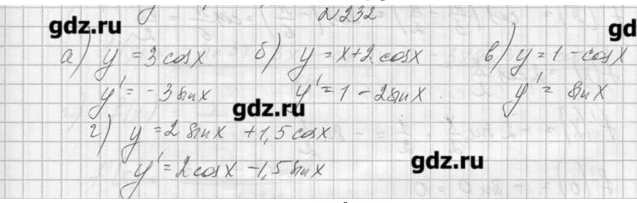 №232
gdz.ru
gd
а) y = 3 cos x б) y = x + 2 cos x в) y = 1 - cos x
y' = -3 sin x y' = 1 - 2 sin x y' = sin x
gdz.ru
г) y = 2 sin x + 1,5 cos x
y' = 2 cos x - 1,5 sin x
gdz.ru